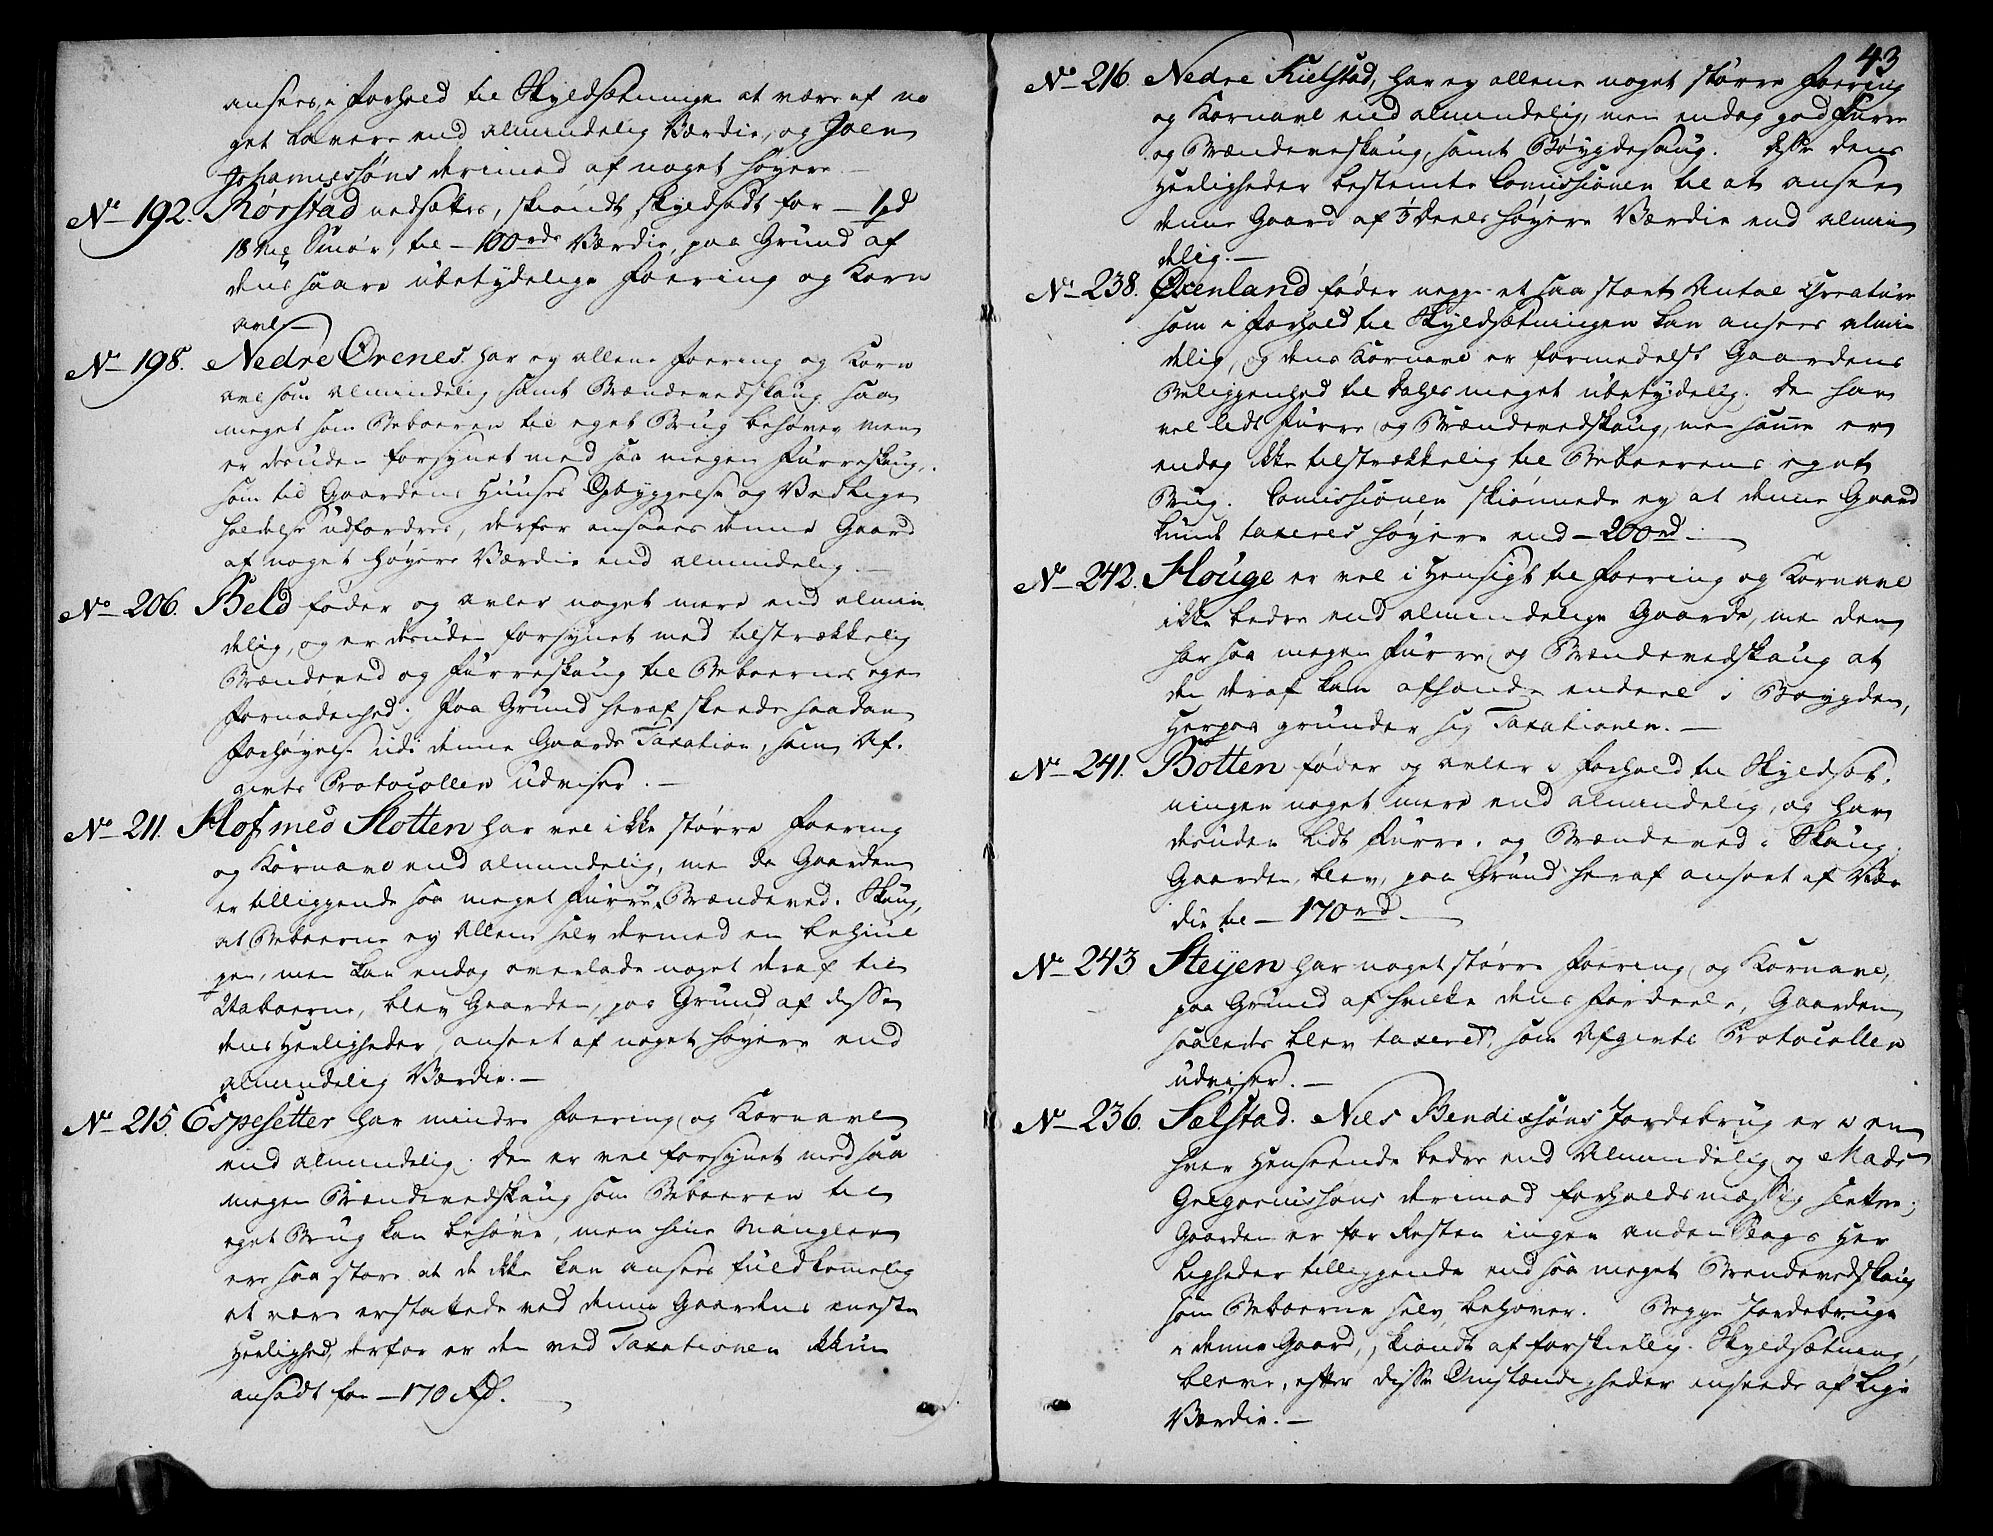 ansees, i Forhold til Skyldsætningen at være af no
get lavere end almindelig Værdie, og Joen
Johannessøns derimod af noget høyere.—
No 192. Rørstad nedsættes, skiøndt skyldsadt for — 1 pd
18 Mk Smør, til — 100 rds Værdie, paa Grund af
dens saare ubetydelige Foering og Korn
avl.—
No 198. Nedre Ørenes har ey allene Foering og Korn
avl som almindelig samt Brændevedskaug saa
meget som Beboeren til eget Brug behøver men
er desuden forsynet med saa megen Furreskaug,
som til Gaardens Huuses Opbyggelse og Vedlige
holdelse udfordres, derfor ansaaes denne Gaard
af noget høyere Værdie end almindelig.—
No 206. Beld føder og avler noget mere end almin
delig, og er desuden forsynet med tilstrækkelig
Brændeved og Furreskaug til Beboernes egen
Fornødenhed; Paa Grund heraf skeede saadan
Forhøyelse udi denne Gaards Taxation, som Af-
givts Protocollen udviser.—
No 211. Hof med Slotten har vel ikke større Foering
og Kornavl end almindelig, men da Gaarden
er tilliggende saa meget Furre & Brændeved-Skaug,
at Beboerne ey allene selv dermed er behiul
pen, men kan endog overlade noget deraf til
Naboerne, blev Gaarden, paa Grund af disse
dens Herligheder, anseet af noget høyere end
almindelig Værdie.—
No 215. Espesetter har mindre Foering og Kornavl
end almindelig. Den er vel forsynet med saa
megen Brændevedskaug som Beboeren til
eget Brug kan behøve, men hine Mangler
ere saa store at de ikke kan ansees fuldkommelig
at være erstattede ved denne Gaardens eneste
Herlighed, derfor er den ved Taxationen ikkun
ansadt for — 170 Rd.—
43
No 216. Nedre Kielstad, har ey allene noget større Foering
og Kornavl end almindelig, men endog god Furre
og Brændeveskaug, samt Bøygdesaug. Disse dens
Herligheder bestemte Comissionen til at ansee
denne Gaard af Deels høyere Værdie end almin
delig.—
No 238. Øxenland føder neppe et saa stort Antal Creature
som i Forhold til Skyldsætningen kan ansees almin
delig, og dens Kornavl er formedelst Gaardens
Beliggenhed til Dahls meget ubetydelig. Den har
vel lidt Furre og Brændevedskaug, men samme er
endog ikke tilstrækkelig til Beboerens eget
Brug. Comissionen skiønnede ey at denne Gaard
kunde taxeres høyere end — 200 rd.—
No 242. Houge er vel i Hensigt til Foering og Kornavl
ikke bedre end almindelige Gaarde, men den
har saa megen Furre og Brændevedskaug at
den deraf kan afhænde endeel i Bøygden,
Herpaa grunder sig Taxationen.—
No 241. Botten føder og avler i Forhold til Skyldsæt-
ningen noget mere end almindelig, og har
desuden lidt Furre- og Brændeved-Skaug.
Gaarden blev, paa Grund heraf anseet af Vær
die til — 170 rd.—
No 243 Steyen har noget større Foering og Kornavl,
paa Grund af hvilke dens Fordeele, Gaarden
saaledes blev taxeret, som Afgivts Protocollen
udviser.—
No 236. Sælstad. Niels Bendixsøns Jordebrug er i en
hver Henseende bedre end Almindelig og Mads
Gregoriussøns derimod forholdsmæssig slettere;
Gaarden er for Resten ingen anden Slags Her
ligheder tilliggende end saa meget Brendevedskaug
som Beboerne selv behøver. Begge Jordebruge
i denne Gaard, skiøndt af forskiellig Skyldsætning,
bleve, efter disse Omstændigheder ansete af lige
Værdie.—